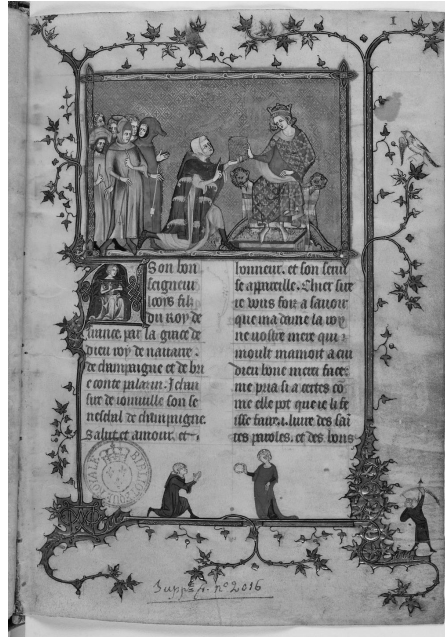 1
A Son bon
seigneur
looys filz
du Roy de
france. par la grace de
dieu roy de nauarre.
de champaigne et de brie
conte palatin. Jehan
sire de ioinuille son se
neschal de champaigne.
Salut et amour. et
honneur. et son seruise
apareille. Chier sire
ie vous foiz a sauoir
que ma dame la royne
uostre mere qui
moult mamoit a cui
dieu bone merci face.
me pria si a certes co
me elle pot que ie li fe
isse faire .i. liure des sain
tes paroles. et des bons
Suppl. n° 2016